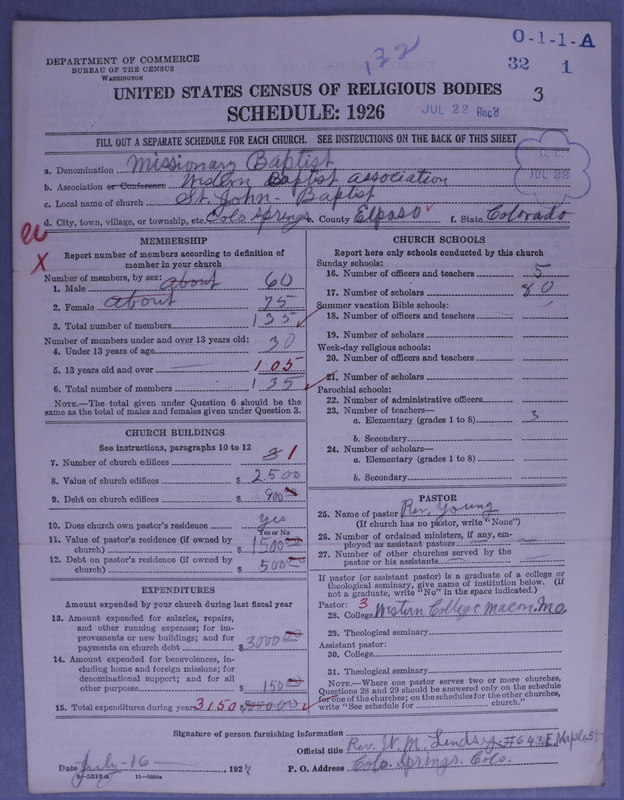 DEPARTMENT OF COMMERCE
BUREAU OF THE CENSUS
WASHINGTON
132
O-1-1-A
32 1
3
UNITED STATES CENSUS OF RELIGIOUS BODIES
SCHEDULE: 1926
JUL 22 Rec'd
FILL OUT A SEPARATE SCHEDULE FOR EACH CHURCH. SEE INSTRUCTIONS ON THE BACK OF THIS SHEET
JUL 22
a. Denomination Missionary Baptist
b. Association or Conference Western Baptist Association
c. Local name of church St. John - Baptist
d. City, town, village, or township, etc. Colo Springs e. County Elpaso f. State Colorado
X
MEMBERSHIP
Report number of members according to definition of
member in your church
Number of members, by sex:
1. Male about 60
2. Female about 75
3. Total number of members 135
Number of members under and over 13 years old:
4. Under 13 years of age 30
5. 13 years old and over 105
6. Total number of members 135
NOTE.—The total given under Question 6 should be
same as the total of males and females given under Question 3.
CHURCH BUILDINGS
See instructions, paragraphs 10 to 12
7. Number of church edifices 3 1
8. Value of church edifices $ 2500
9. Debt on church edifices $ 900
10. Does church own pastor's residence yes
Yes or No
11. Value of pastor's residence (if owned by
church) $ 1500.00
12. Debt on pastor's residence (if owned by
church) $ 500
EXPENDITURES
Amount expended by your church during last fiscal year
13. Amount expended for salaries, repairs,
and other running expenses; for im-
provements or new buildings; and for
payments on church debt $ 3000.00
14. Amount expended for benevolences, in-
cluding home and foreign missions; for
denominational support; and for all
other purposes $ 150.00
15. Total expenditures during year 3150 $
CHURCH SCHOOLS
Report here only schools conducted by this church
Sunday schools:
16. Number of officers and teachers 5
17. Number of scholars 80
Summer vacation Bible schools:
18. Number of officers and teachers
19. Number of scholars
Week-day religious schools:
20. Number of officers and teachers
21. Number of scholars
Parochial schools:
22. Number of administrative officers
23. Number of teachers—
a. Elementary (grades 1 to 8) 3
b. Secondary
24. Number of scholars—
a. Elementary (grades 1 to 8)
b. Secondary
PASTOR
25. Name of pastor Rev. Young
(If church has no pastor, write "None")
26. Number of ordained ministers, if any, em-
ployed as assistant pastors
27. Number of other churches served by the
pastor or his assistants
If pastor (or assistant pastor) is a graduate of a college or
theological seminary, give name of institution below. (If
not a graduate, write "No" in the space indicated.)
Pastor: 3
28. College Western College Macon, Mo.
29. Theological seminary
Assistant pastor:
30. College
31. Theological seminary
NOTE.—Where one pastor serves two or more churches,
Questions 28 and 29 should be answered only on the schedule
for one of the churches; on the schedules for the other churches,
write "See schedule for church."
Signature of person furnishing information
Official title Rev. W. M. Lindsay #643 E. Maple st
Date July-16- 192 P. O. Address Colo. Springs. Colo.